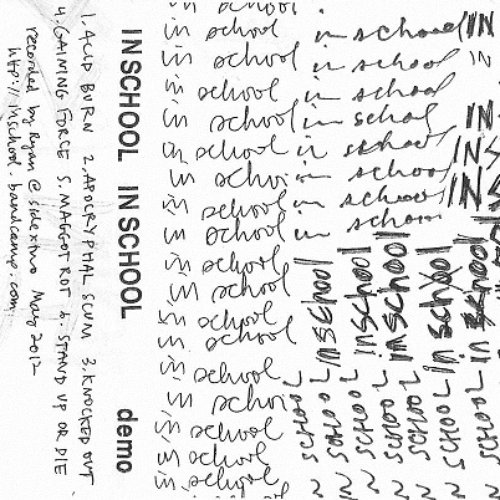 1. ACID BURN 2. APOCRYPHAL SCUM 3. KNOCKED OUT
4. GAINING FORCE 5. MAGGOT ROT 6. STAND UP OR DIE
recorded by Ryan @ sidextwo May 2012
http://inschool.bandcamp.com
IN SCHOOL IN SCHOOL demo
in school
in school
in school
in school
in school
in school
in schoo
in school
in school
in school
in school
in school
in school
in school
in schoo
in school
in school
in school
in school
in school
in school
in school
in school
in school
in school
in school
in school
IN
IN
IN
IN
IN
inschool
inschool
inschool
in school
in school
N SCHOOL
N SCHOOL
N SCHOOL
N SCHOOL
N SCHOOL
N SCHOOL
N SCHOOL